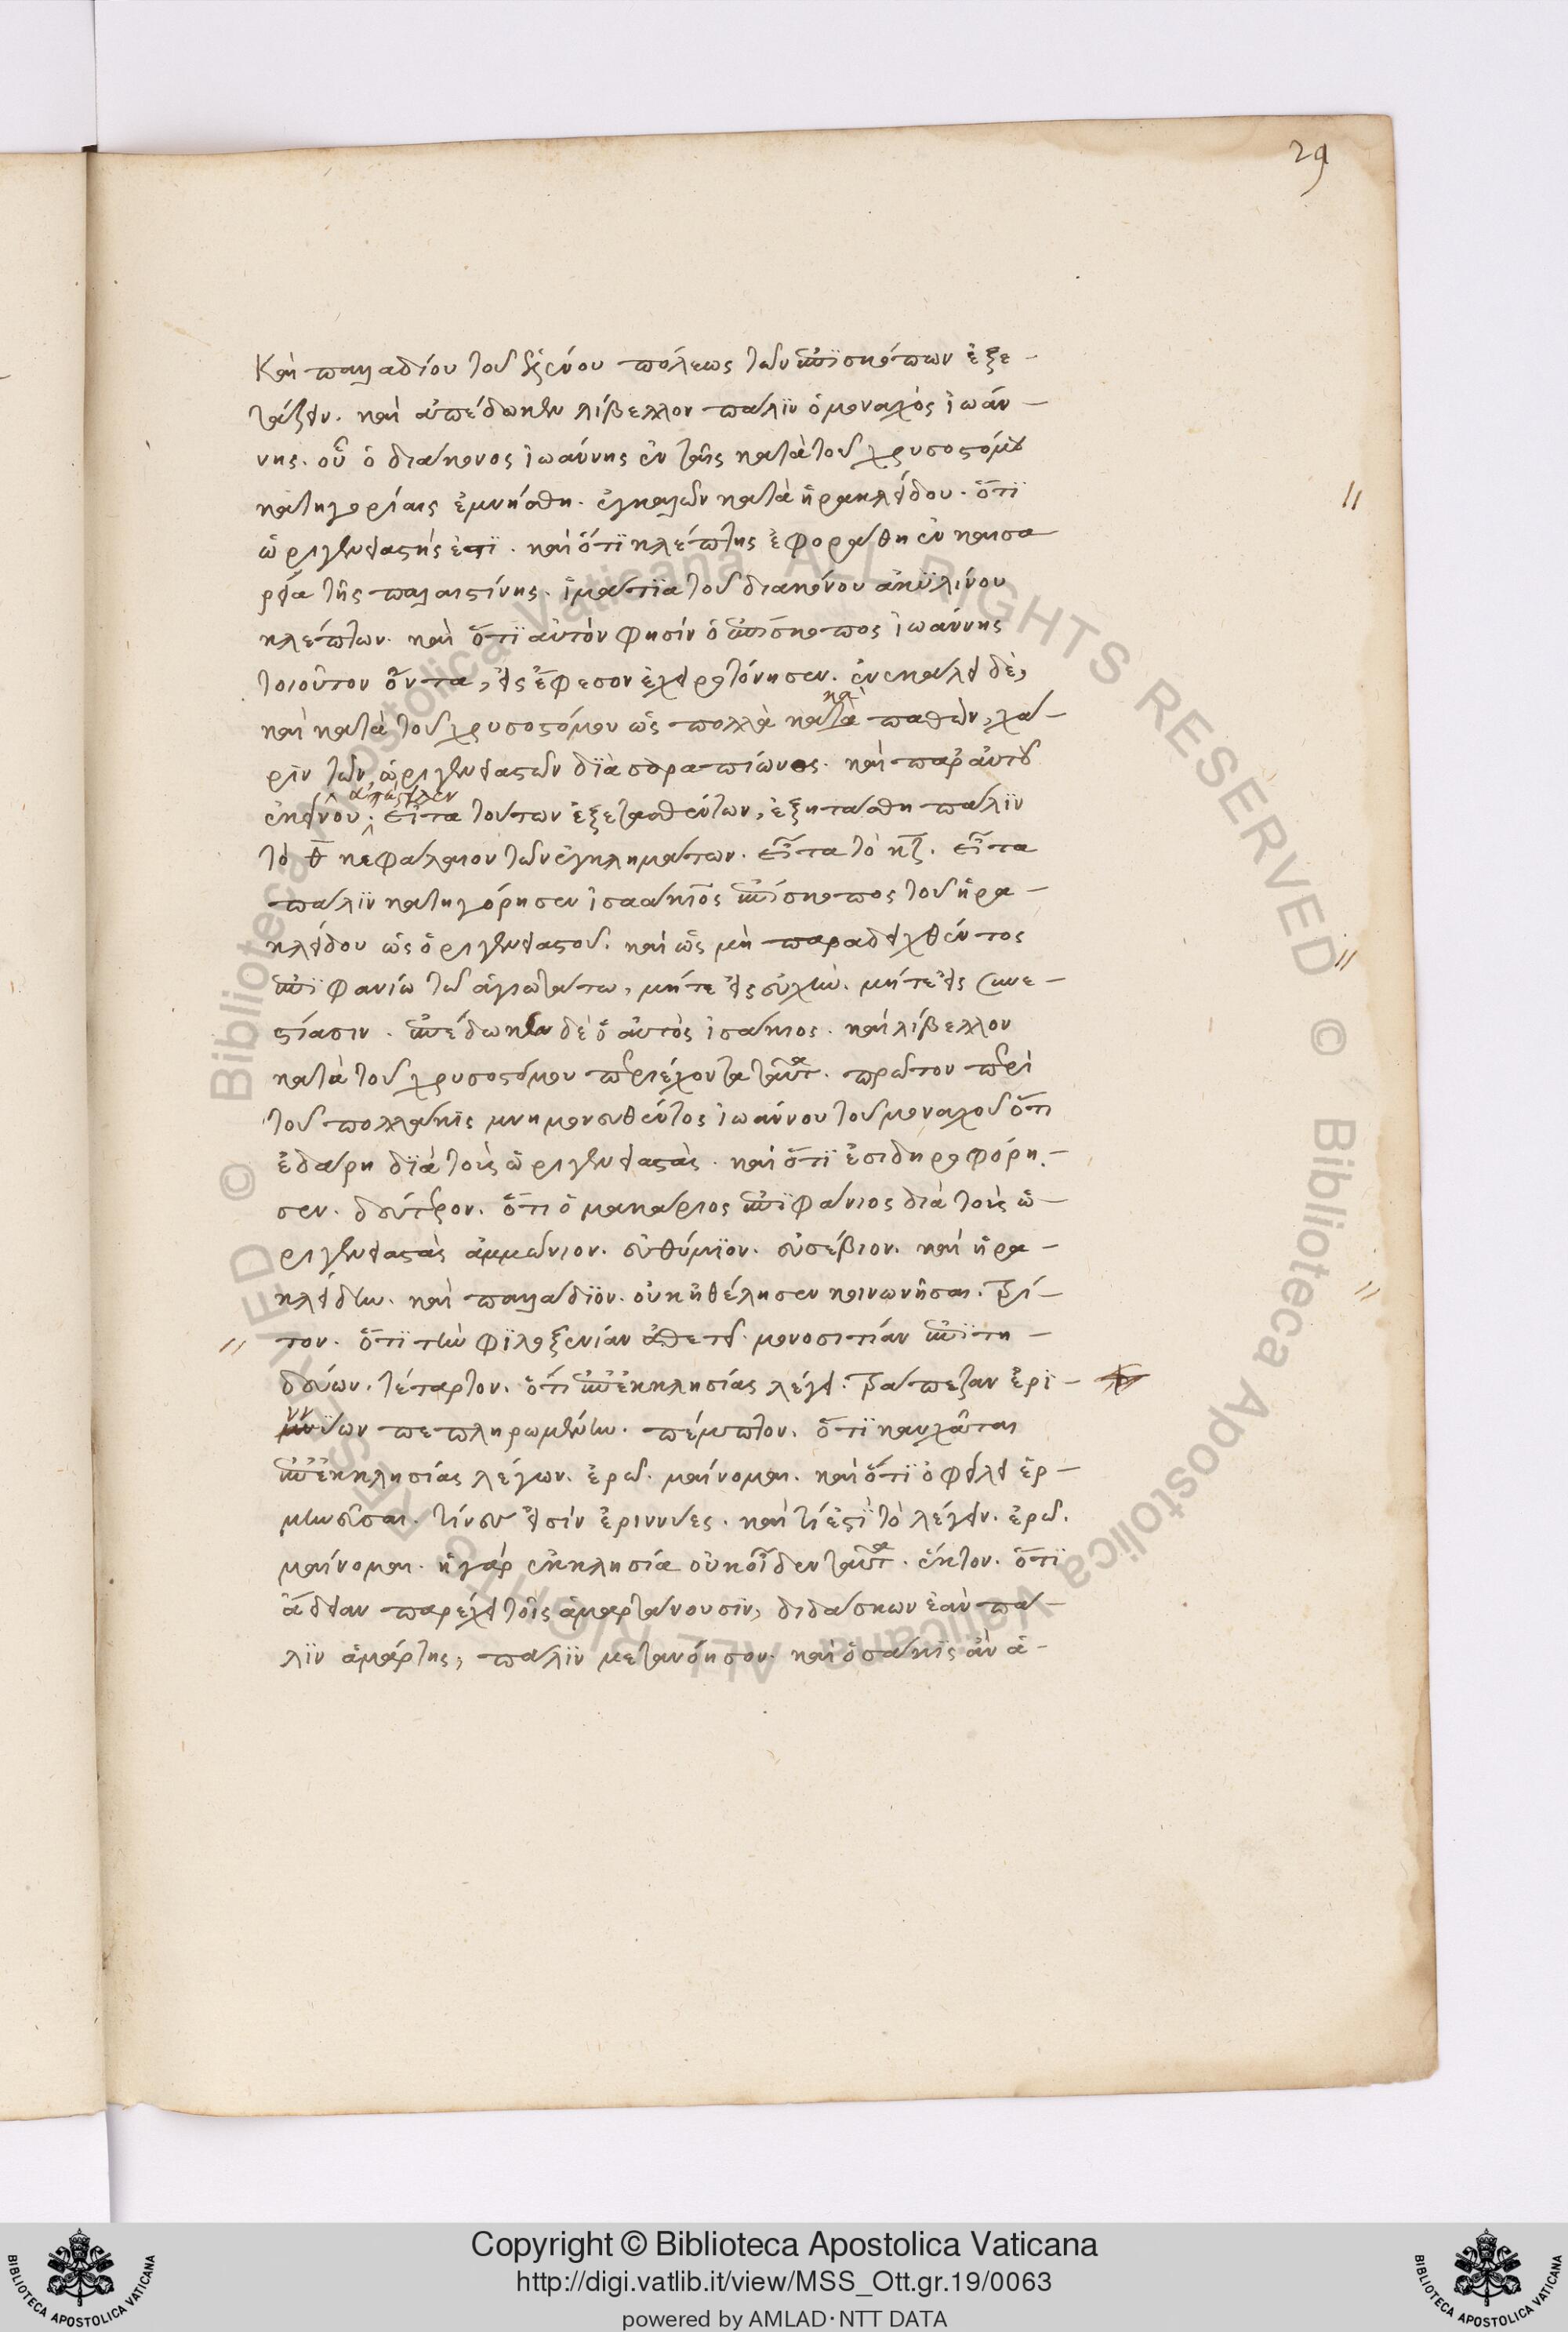 29
Καὶ παλλαδίου τοῦ ἑλενουπόλεως τῶν ἐπισκόπων ἐξε-
τάζειν. καὶ ἀπέδωκεν λίβελλον πάλιν ὁ μοναχὸς ἰωάν-
νης. οὗ ὁ διάκονος ἰωάννης ἐν ταῖς κατὰ τοῦ χρυσοστόμου
κατηγορίαις ἐμνήσθη. ἐγκαλῶν κατὰ ἡρακλείδου. ὅτι
ὠριγενειαστής ἐστι. καὶ ὅτι κλέπτης ἐφοράθη ἐν καισα
ρεία τῆς παλαιστίνης. ἱμάτια τοῦ διακόνου ἀκυλίνου
κλέπτων. καὶ ὅτι αὐτόν φησίν ὁ ἐπίσκοπος ἰωάννης
τοιοῦτον ὄντα, εἰς ἔφεσον ἐχειροτόνησεν. ἐνεκάλει δὲ,
καὶ κατὰ τοῦ χρυσοστόμου ὡς πολλὰ κακὰ παθὼν, χά-
ριν τῶν ὠριγενειαστῶν διὰ σεραπίωνος. καὶ παρ αὐτοῦ
ἐκείνου. εἶτα τούτων ἐξετασθέντων, ἐξητάσθη πάλιν
τὸ θ κεφάλαιον τῶν ἐγκλημάτων. εἶτα τὸ κζ. εἶτα
πάλιν κατηγόρησεν ἰσαάκιος ἐπίσκοπος τοῦ ἡρα-
κλείδου ὡς ὀριγενειαστοῦ. καὶ ὡς μὴ παραδειχθέντος
ἐπιφανίω τῶ ἁγιωτάτω, μήτε εἰς εὐχὴν. μήτε εἰς συνε-
στίασιν. ἐπέδωκεν δὲ ὁ αὐτὸς ἰσάκιος. καὶ λίβελλον
κατὰ τοῦ χρυσοστόμου περιέχοντα ταῦτα. πρῶτον περὶ
τοῦ πολλάκις μνημονευθέντος ἰωάννου τοῦ μοναχοῦ ὅτι
ἐδάρη διὰ τοὺς ὠριγενειαστὰς. καὶ ὅτι ἐσιδηροφόρη-
σεν. δεύτερον. ὅτι ὁ μακάριος ἐπιφάνιος διὰ τοὺς ὠ-
ριγενειαστὰς ἀμμώνιον. εὐθύμιον. εὐσέβιον. καὶ ἡρα-
κλείδην. καὶ παλλάδιον. οὐκ ἠθέλησεν κοινωνῆσαι. τρί-
τον. ὅτι τὴν φιλοξενίαν ἀθετεῖ. μονοσιτίαν ἐπιτη-
δεύων. τέταρτον. ὅτι ἐπ ἐκκλησίας λέγει. τράπεζαν ἐρι-
ννύων πεπληρωμένην. πέμπτον. ὅτι καυχᾶται
ἐπ ἐκκλησίας λέγων. ἐρῶ. μαίνομαι. καὶ ὅτι ὀφείλει ἑρ-
μηνεῦσαι. τίνες εἰσίν ἐριννύες. καὶ τί ἐστὶ τὸ λέγειν. ἐρῶ.
μαίνομαι. ἡ γάρ ἐκκλησία οὐκ οἶδεν ταῦτα. ἕκτον. ὅτι
ἄδειαν παρέχει τοῖς ἁμαρτάνουσιν, διδάσκων ἐὰν πά-
λιν ἁμάρτης, πάλιν μετανόησον. καὶ ὁσάκις ἂν ἁ-
Copyright © Biblioteca Apostolica Vaticana
http://digi.vatlib.it/view/MSS_Ott.gr.19/0063
powered by AMLAD·NTT DATA